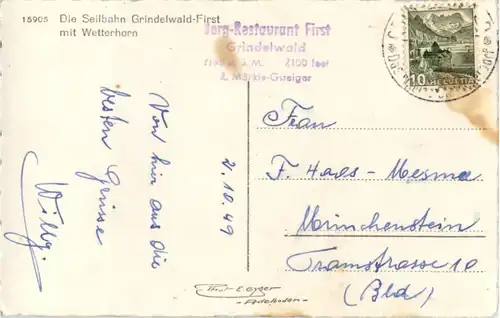 15905 Die Seilbahn Grindelwald-First
mit Wetterhorn
Berg-Restaurant First
Grindelwald
7100 feet
HELVETIA
10
Von hier aus die
besten Grüsse
Willy.
2.10.49
Frau
F. Haas-Mesmer
Münchenstein
Tramstrasse 10
(Bld)
Phot. E. Gyger
- Adelboden -